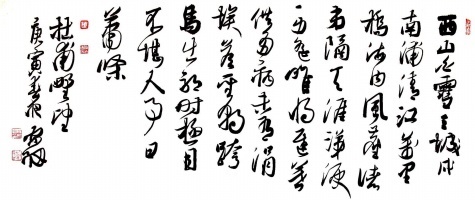 西山白雪三城戍
南浦清江萬里
橋海内風塵諸
弟隔天涯涕淚
一身遥惟將遲暮
供多病未有涓
埃答聖朝跨
馬出郊時極目
不堪人事日
蕭條
杜甫野望
庚寅